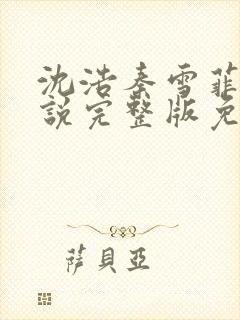 沈浩秦雪菲
說完整版免
薩貝亞